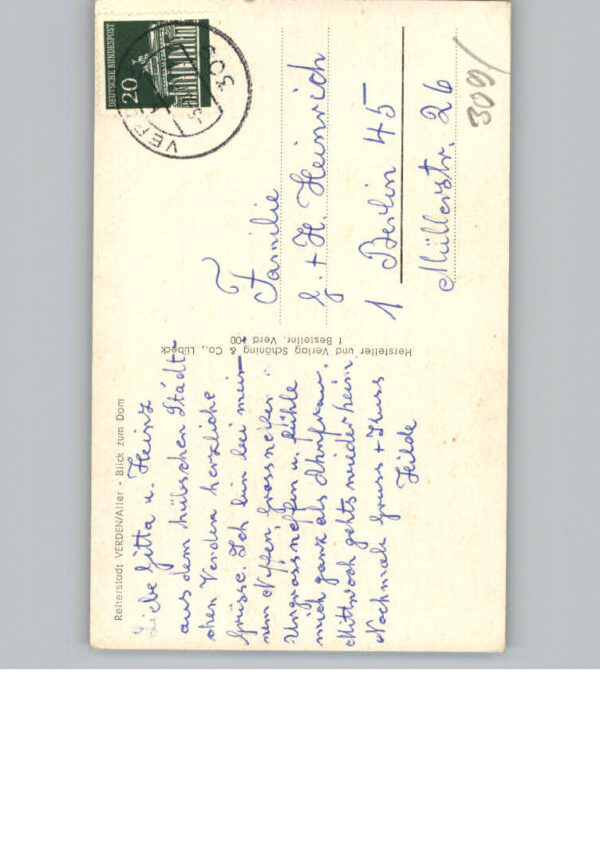 Reiterstadt VERDEN/Aller - Blick zum Dom
Liebe Gitta u. Heinz
aus dem hübschen Städt-
chen Verden herzliche
Grüsse. Ich bin bei mei-
nem Neffen, Grossneffen
Urgrossneffen u. fühle
mich ganz als Ahnfrau.
Mittwoch gehts wieder heim.
Nochmals Gruss + Kuss
Hilde
Hersteller und Verlag Schöning & Co., Lübeck
1 Bestellnr. Verd 100
DEUTSCHE BUNDESPOST
20
309
VER
Familie
G. + H. Heinrich
1 Berlin 45
Müllerstr. 26
309/